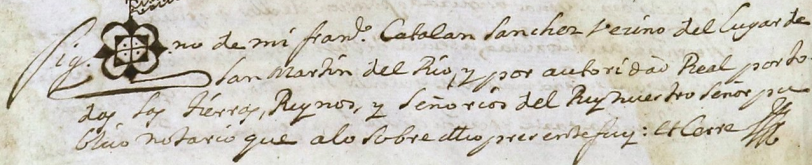 Sig. no de mi fran.do Catalan Sanchez Vezino del Lugar de
San Martin del Rio, y por autoridad Real por to
das las tierras, Reynos, y Señorios del Rey nuestro Señor pu
blico notario que a lo sobre dho presente fuy: et Cerre